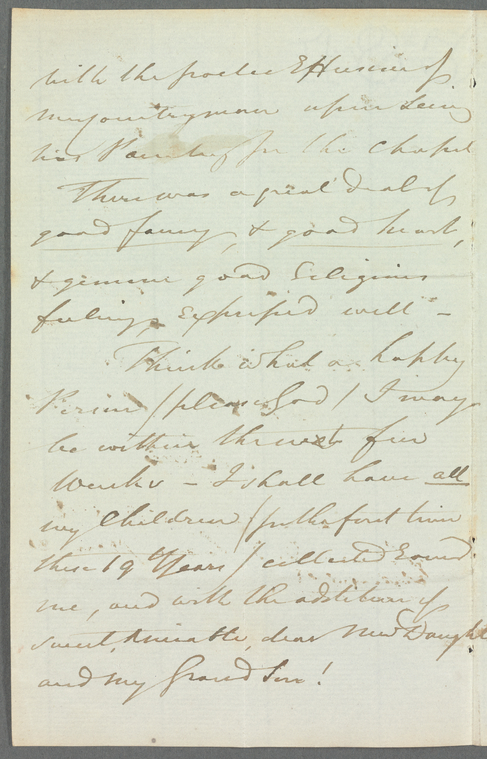 with the poetic Effusion of
my Countryman upon seeing
his Painting for the Chapel
There was a great deal of
good fancy, & good heart,
& genuine good religious
feelings expressed well" -
Think what a happy
Person /please God/ I may
be within the next few
Weeks - I shall have all
my Children /for the first time
these 19 Years/ collected round
me, and with the addition of
sweet, amiable, dear New Daught
and my Grand Son!